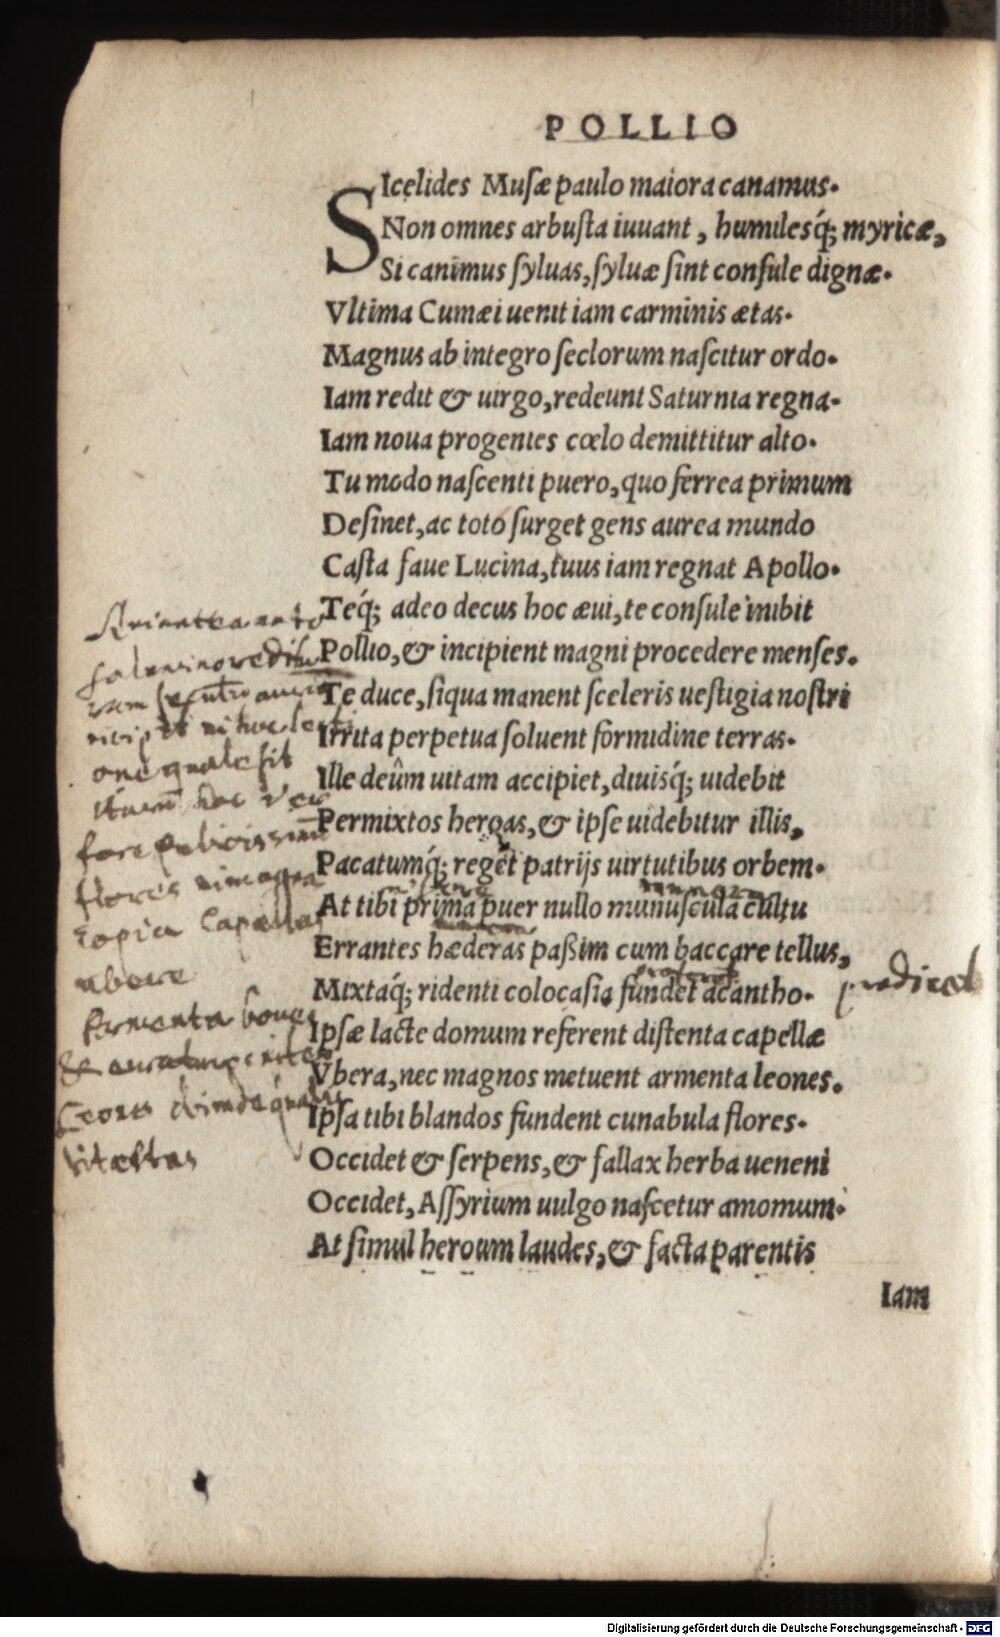 POLLIO
SIcelides Muſæ paulo maiora canamus.
Non omnes arbuſta iuuant, humilesq́; myricæ,
Si canimus ſyluas, ſyluæ ſint conſule dignæ.
Vltima Cumæi uenit iam carminis ætas.
Magnus ab integro ſeclorum naſcitur ordo.
Iam redit & uirgo, redeunt Saturnia regna.
Iam noua progenies cœlo demittitur alto.
Tu modo naſcenti puero, quo ferrea primum
Deſinet, ac toto ſurget gens aurea mundo
Caſta faue Lucina, tuus iam regnat Apollo.
Teq́; adeo decus hoc æui, te conſule inibit
Pollio, & incipient magni procedere menſes.
Te duce, ſiqua manent ſceleris ueſtigia noſtri
Irrita perpetua ſoluent formidine terras.
Ille deûm uitam accipiet, diuisq́; uidebit
Permixtos heroas, & ipſe uidebitur illis,
Pacatumq́; reget patrijs uirtutibus orbem.
At tibi prima puer nullo munuſcula cultu
Errantes hæderas paßim cum baccare tellus,
Mixtaq́; ridenti colocaſia fundet acantho.
Ipſæ lacte domum referent diſtenta capellæ
Vbera, nec magnos metuent armenta leones.
Ipſa tibi blandos fundent cunabula flores.
Occidet & ſerpens, & fallax herba ueneni
Occidet, Aſſyrium uulgo naſcetur amomum.
At ſimul heroum laudes, & facta parentis
Iam
flores
copia capellas
ubere
armenta boues
Digitalisierung gefördert durch die Deutsche Forschungsgemeinschaft - DFG